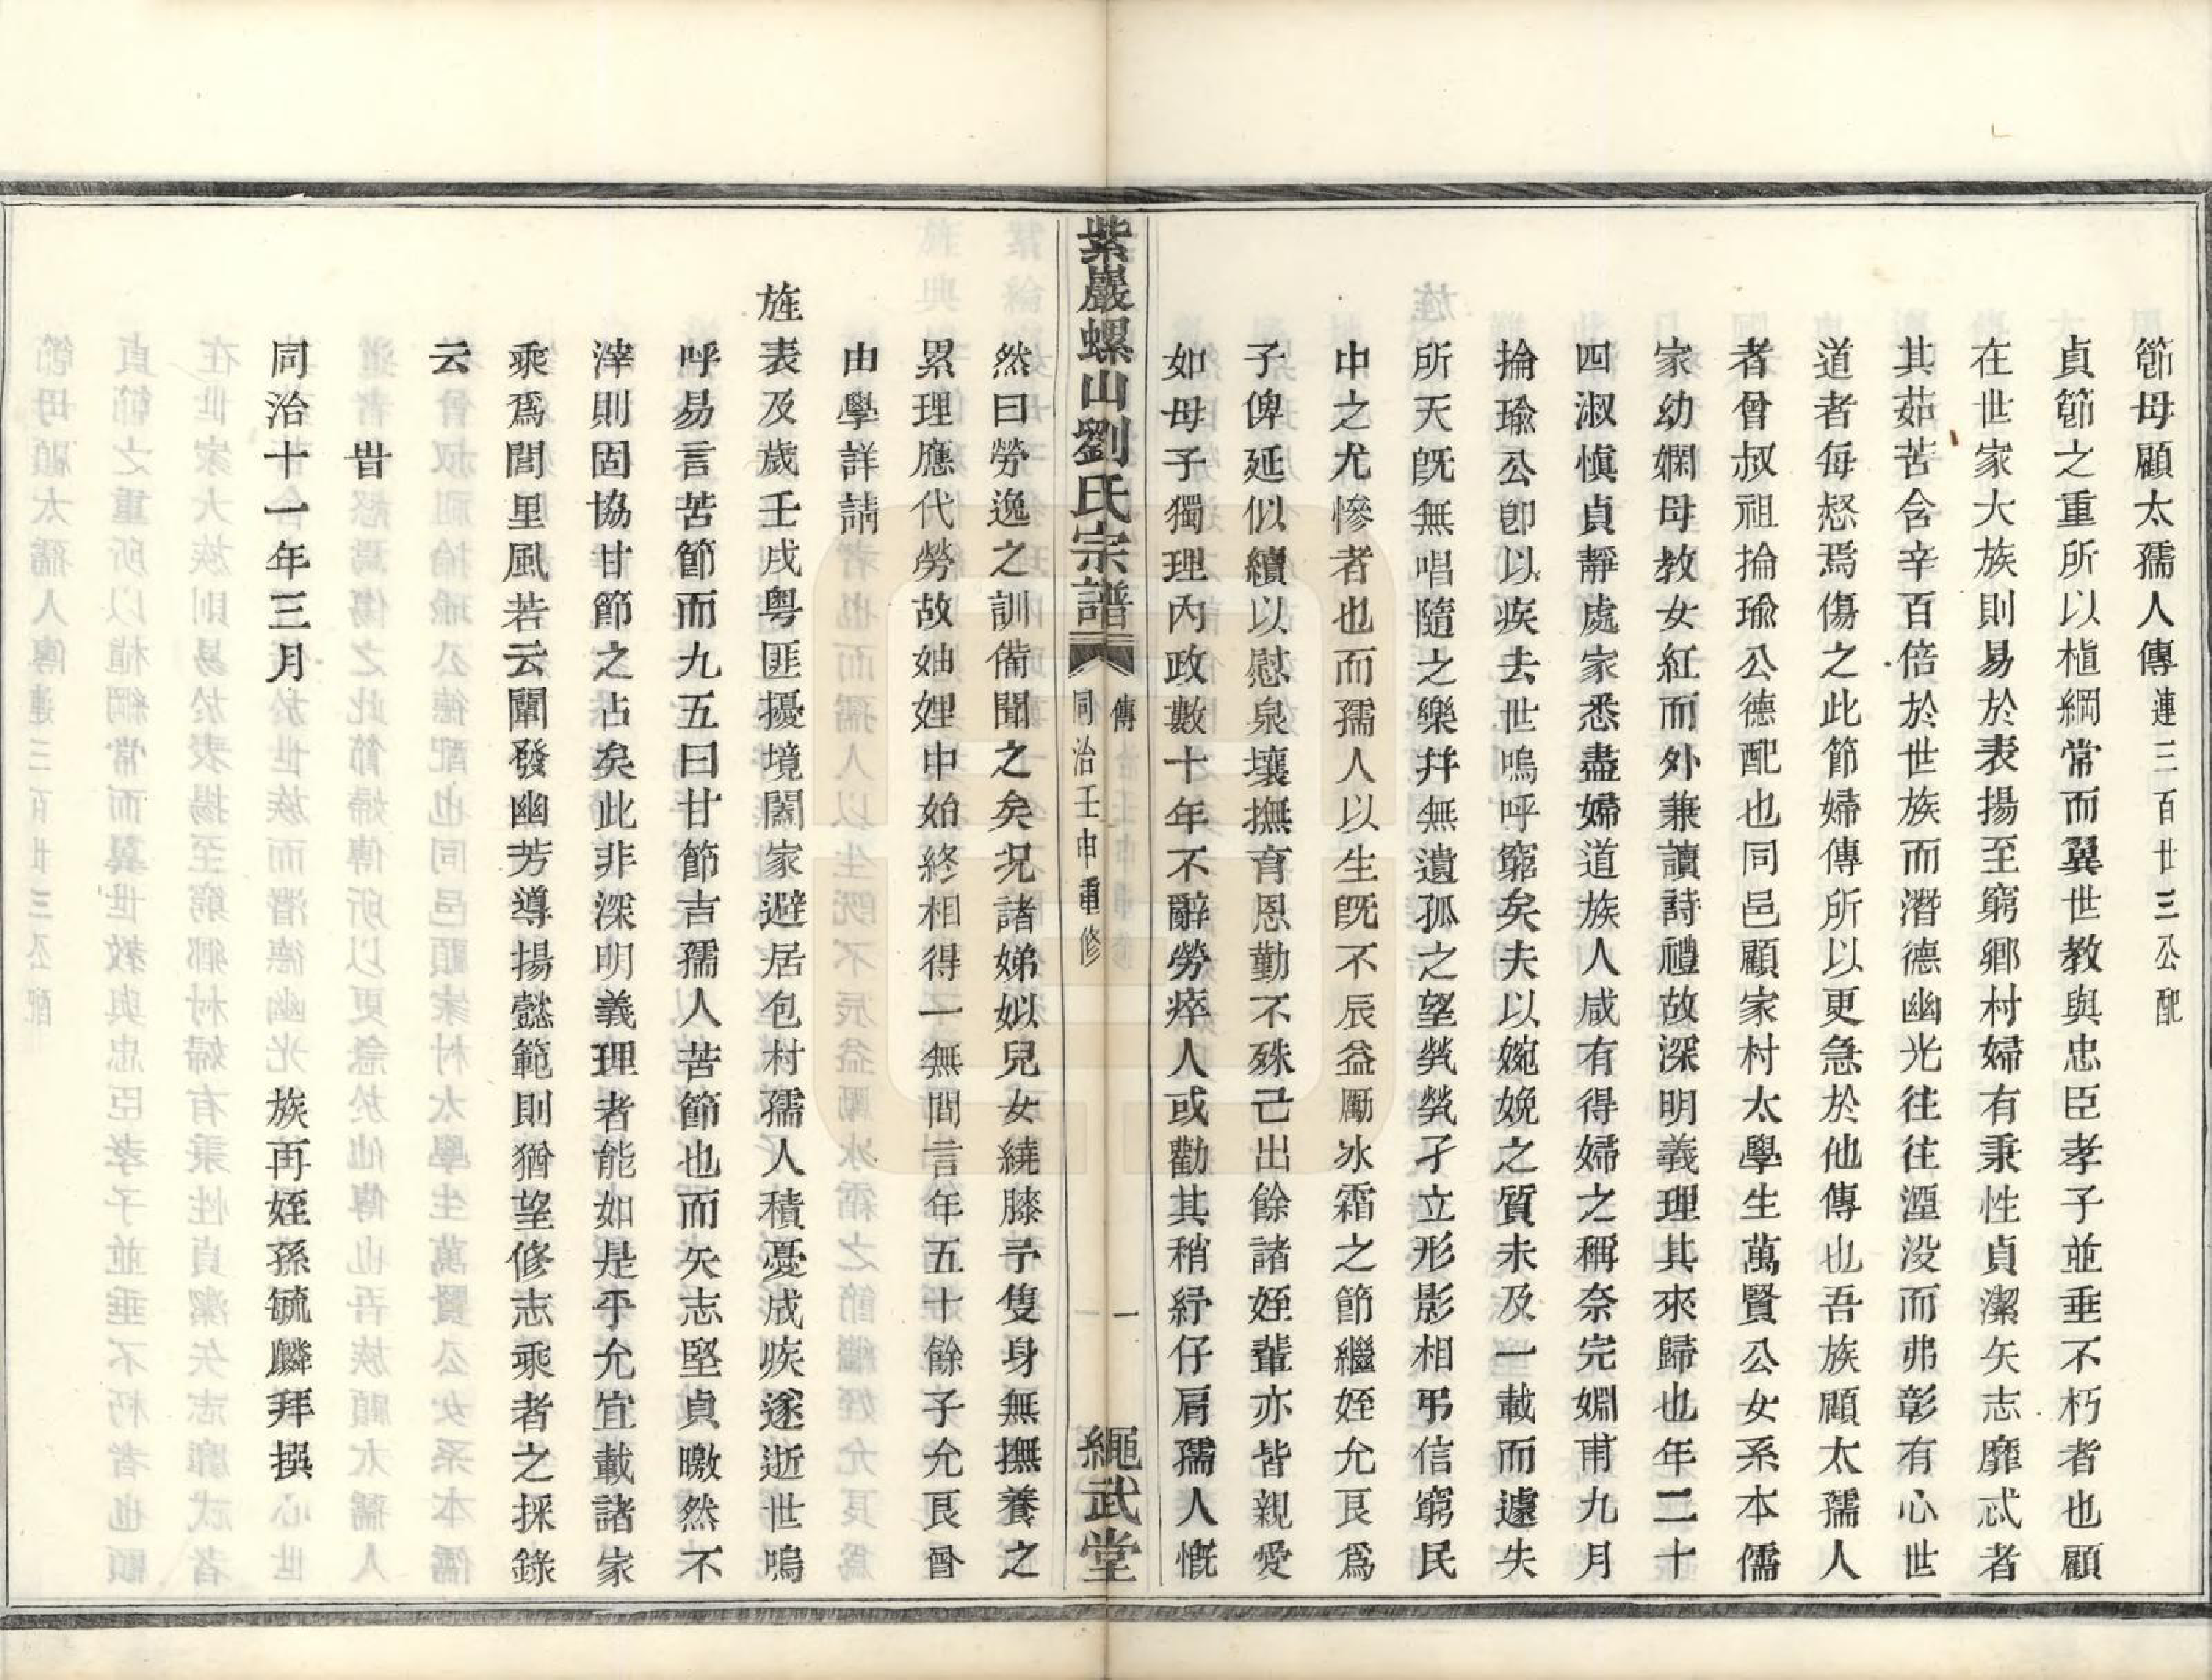 節母顧太孺人傳連三百廿三公配
貞節之重所以植綱常而翼世教與忠臣孝子並垂不朽者也顧
在世家大族則易於表揚至窮鄉村婦有秉性貞潔矢志靡忒者
其茹苦含辛百倍於世族而潛德幽光往往湮没而弗彰有心世
道者每惄焉傷之此節婦傳所以更急於他傳也吾族顧太孺人
者曾叔祖掄瑜公德配也同邑顧家村太學生萬賢公女系本儒
家幼嫻母教女紅而外兼讀詩禮故深明義理其來歸也年二十
四淑愼貞靜處家悉盡婦道族人咸有得婦之稱奈完婣甫九月
掄瑜公卽以疾去世嗚呼窮矣夫以婉娩之質未及一載而遽失
所天旣無唱隨之樂并無遺孤之望煢煢孑立形影相弔信窮民
中之尤慘者也而孺人以生旣不辰益厲冰霜之節繼姪允艮爲
子俾延似續以慰泉壤撫育恩勤不殊己出餘諸姪輩亦皆親愛
如母子獨理內政數十年不辭勞瘁人或勸其稍紓仔肩孺人慨
紫巖螺山劉氏宗譜 傳 同治壬申重修 一 繩武堂
然曰勞逸之訓備聞之矣況諸娣姒兒女繞膝予隻身無撫養之
累理應代勞故妯娌中始終相得一無間言年五十餘子允艮曾
由學詳請
旌表及歲壬戌粤匪擾境闔家避居包村孺人積憂成疾遂逝世嗚
呼易言苦節而九五曰甘節吉孺人苦節也而矢志堅貞曒然不
滓則固協甘節之占矣此非深明義理者能如是乎允宜載諸家
乘爲閭里風若云闡發幽芳導揚懿範則猶望修志乘者之採錄
云
旹
同治十一年三月 族再姪孫毓麟拜撰